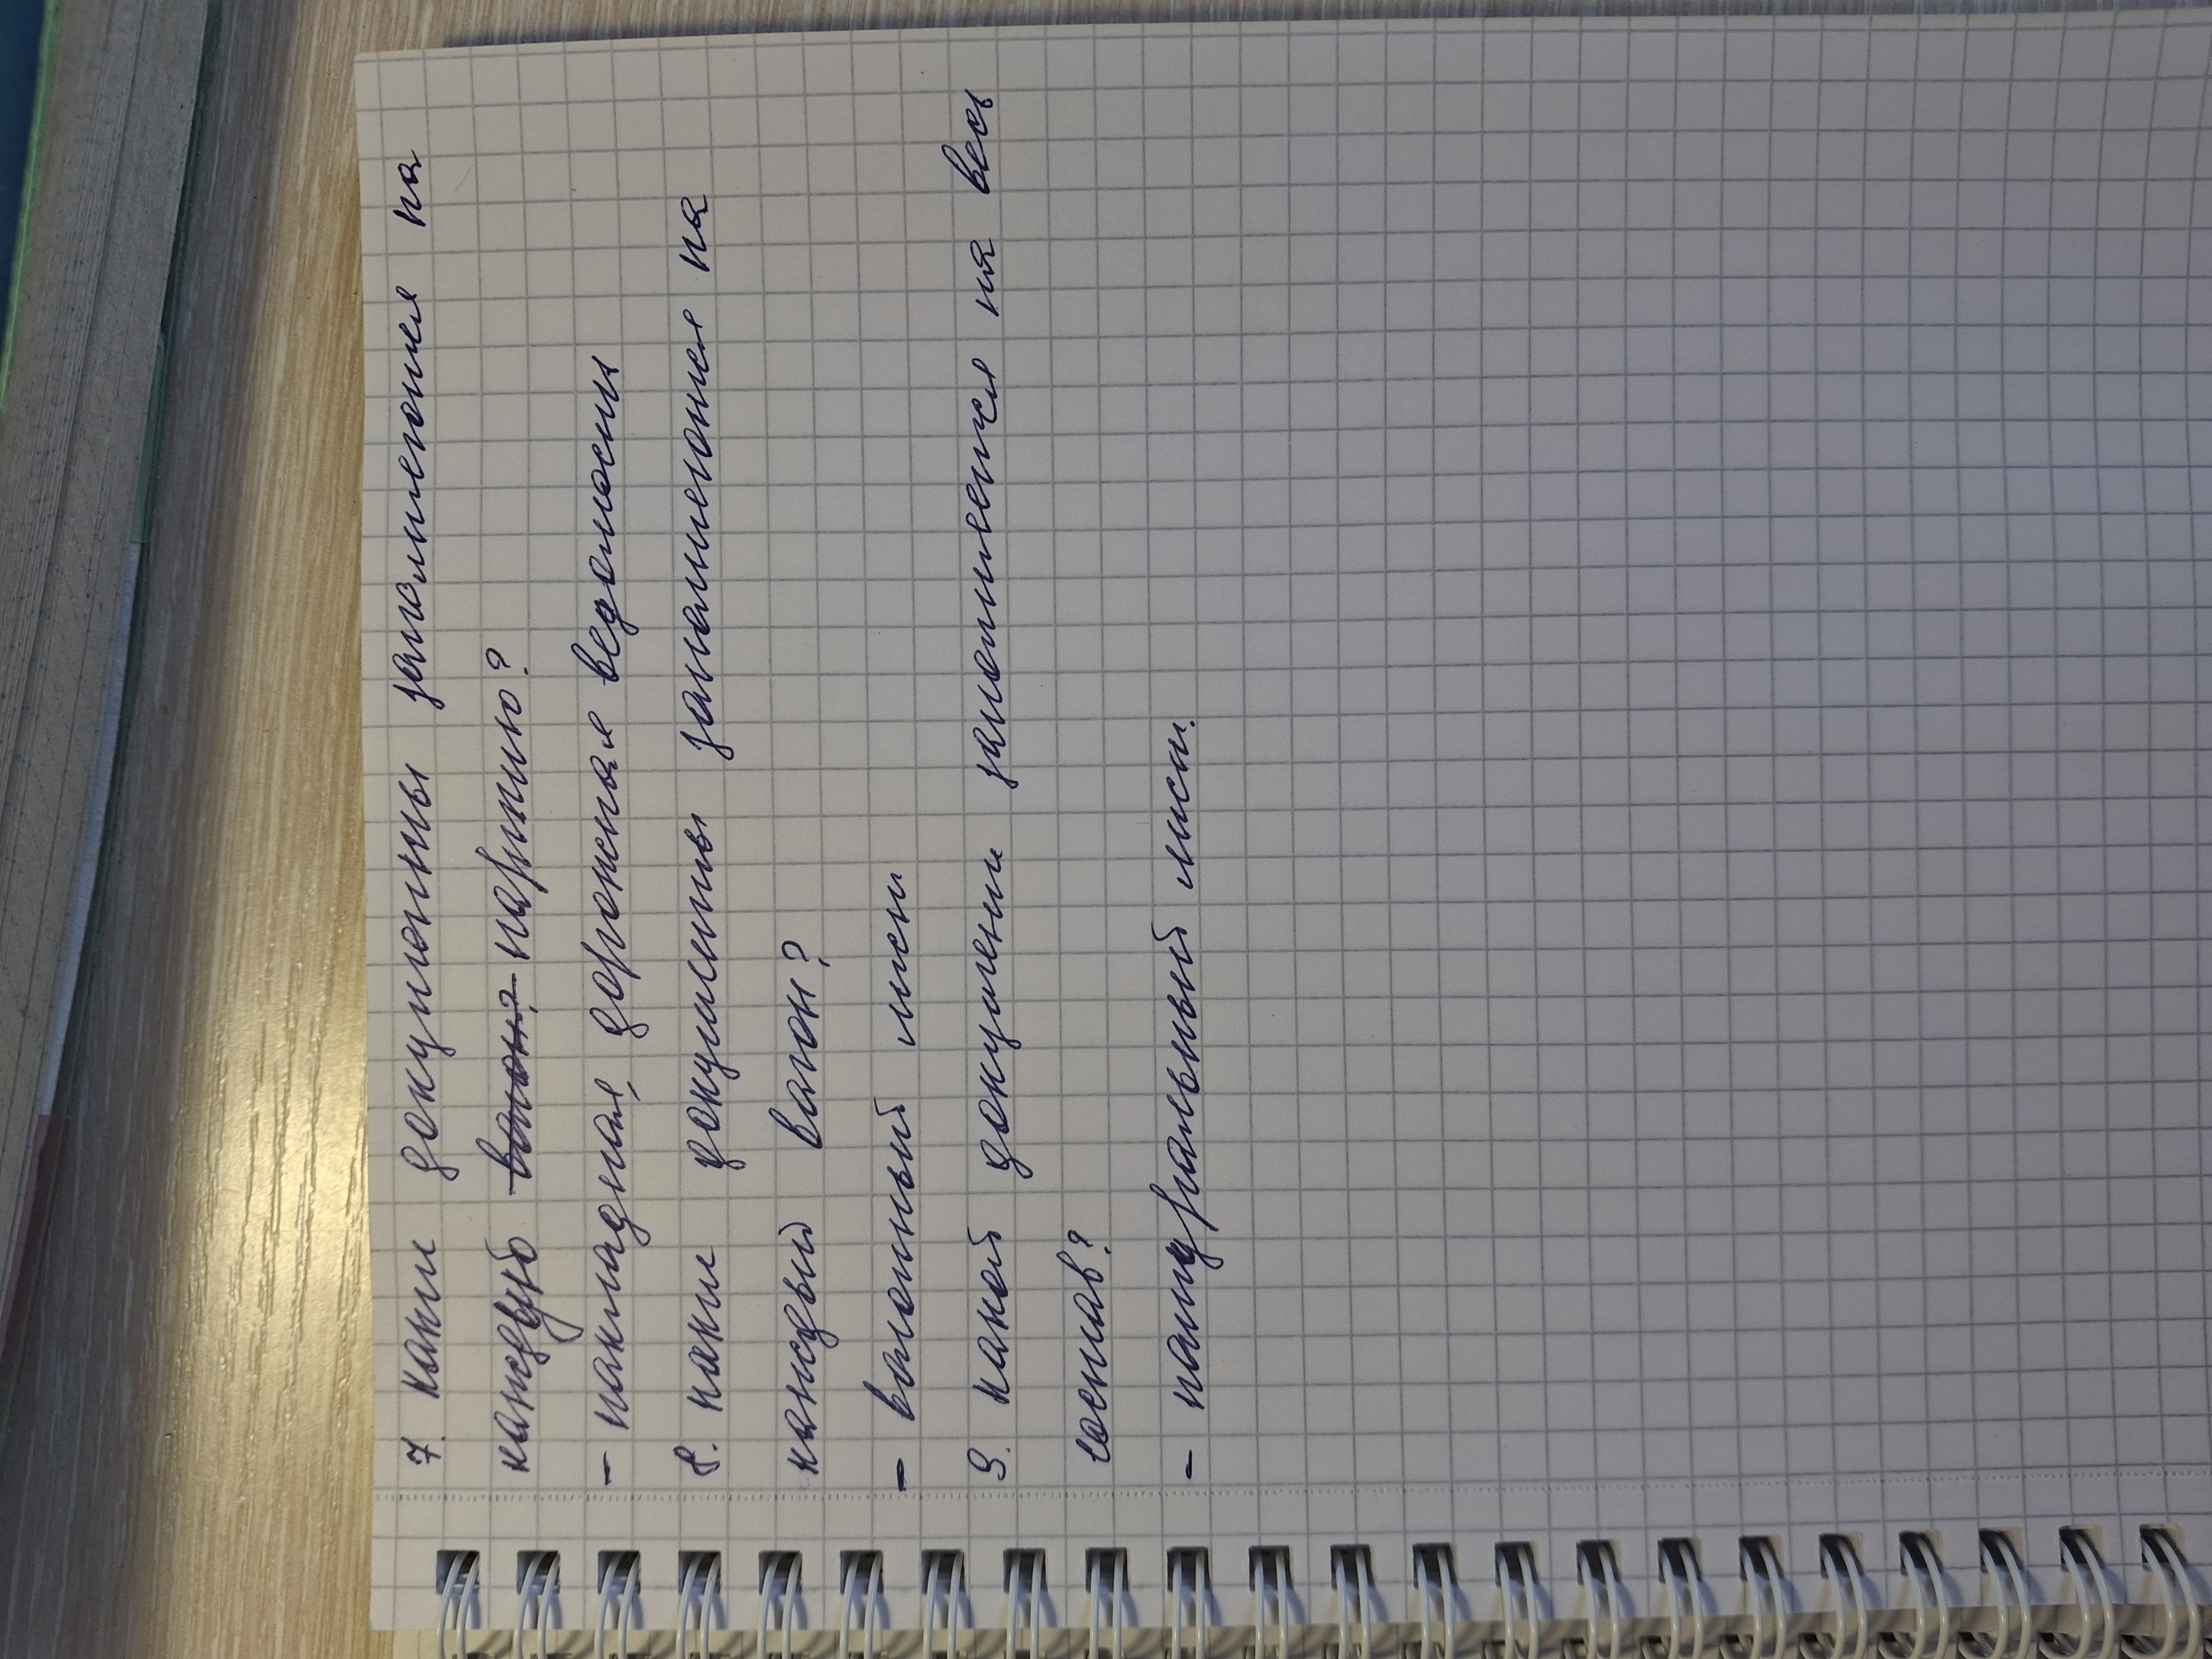 7. какие документы заполняются на
каждую вагон? партию?
- накладная, дорожная ведомости
8. какие документы заполняются на
каждый вагон?
- вагонный лист
9. какой документ заполняется на весь
состав?
- натуральный лист.